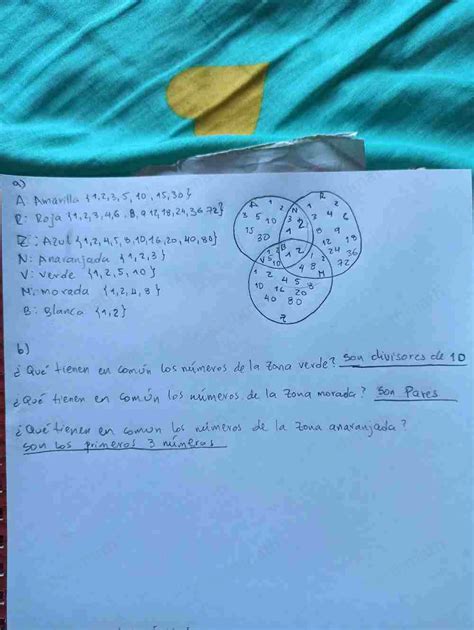 a)
A: Amarilla {1,2,3,5,10,15,30}
R: Roja {1,2,3,4,6,8,9,12,18,24,36,72}
Z: Azul {1,2,4,5,8,10,16,20,40,80}
N: Anaranjada {1,2,3}
V: Verde {1,2,5,10}
M: morada {1,2,4,8}
B: Blanca {1,2}
A 1 2 N R 1 2
3 5 10 3 2 3 4 6
15 1 8 9
30 12 18
1 2 24 36
V 5 10 72
4 8 M
1 2 4 5 8
10 16 20
40 80
Z
b)
¿Qué tienen en común los números de la zona verde? Son divisores de 10
¿Qué tienen en común los números de la zona morada? Son Pares
¿Qué tienen en comun los números de la zona anaranjada?
son los primeros 3 números